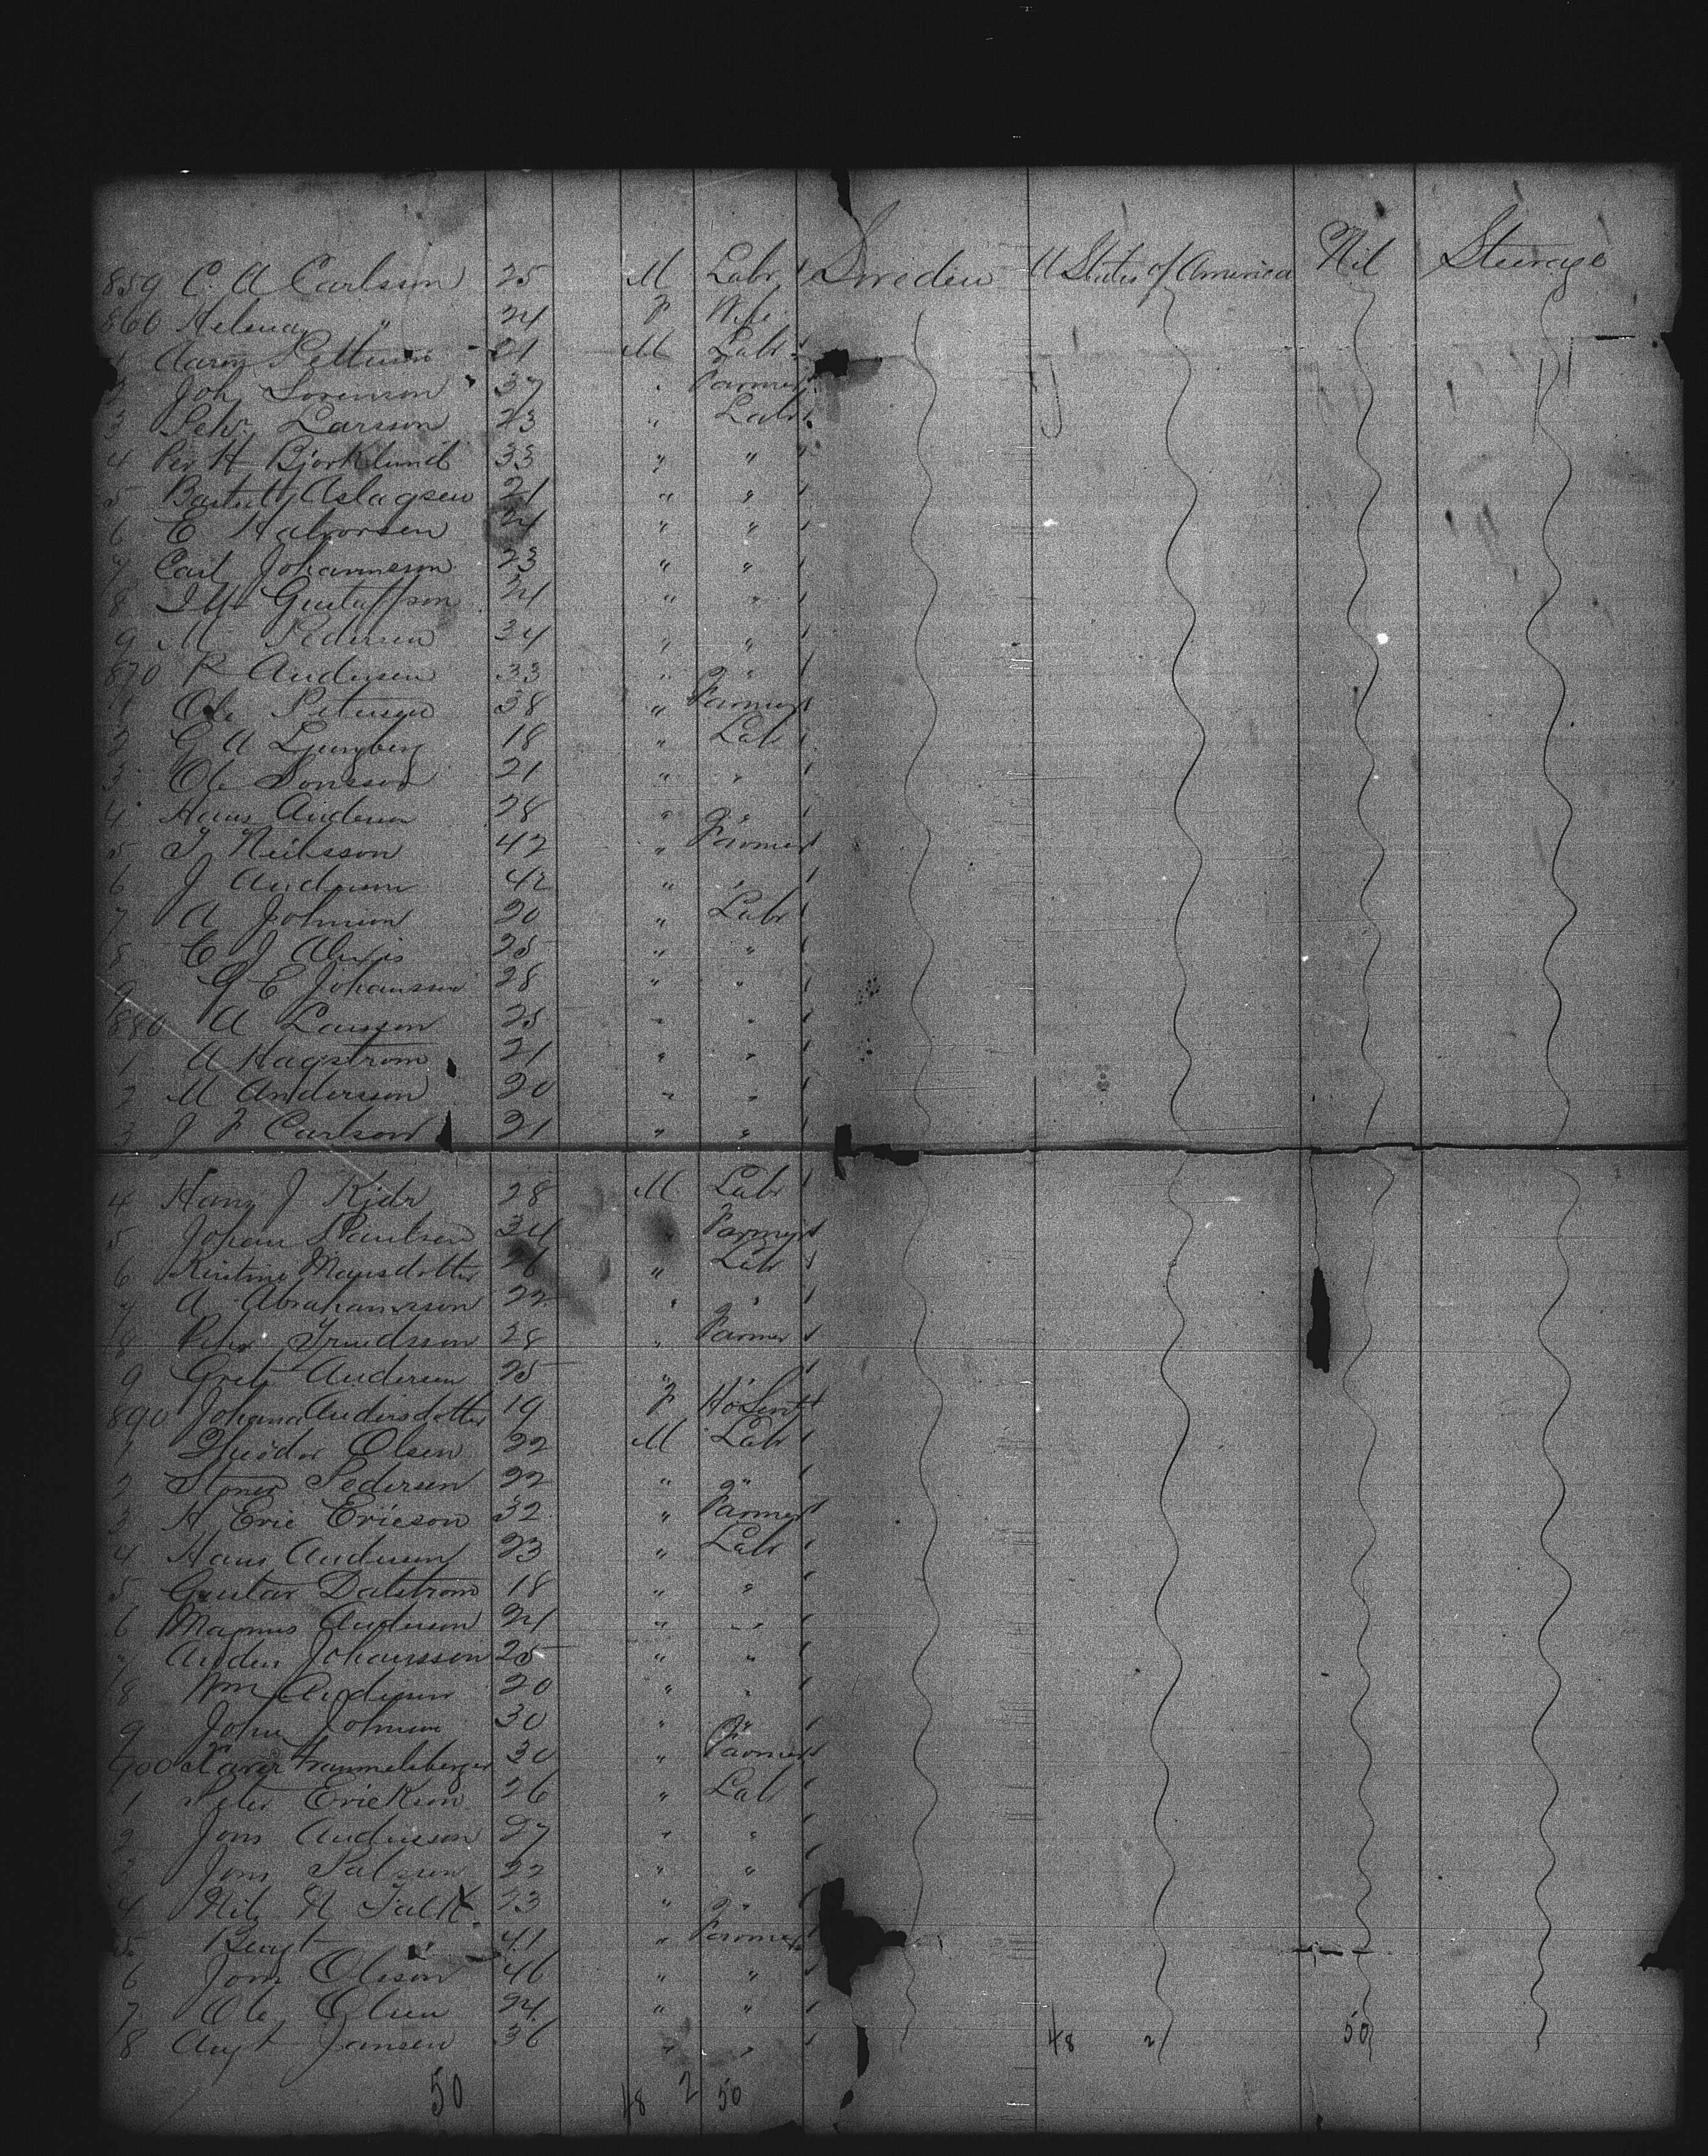 859 C. A Carlsson 25 M Labr Sweden U States of America Nil Steerage
860 Helena " 24 F Wife
1 Aaron 21 M Labr
2 Joh Sorenson 37 " Farmer
3 Larsson 23 " Labr
4 Per H Bjorklund 33 " "
5 Aslagsen 21 " "
6 E Halvorsen 21 " "
7 Carl Johanneson 23 " "
8 Gustaffson 21 " "
9 M Pedersen 34 " "
870 P Andersen 33 " "
1 Ole Petersen 38 " Farmer
2 G A Ljungberg 18 " Labr
3 Ole Jonsson 21 " "
4 Hans Andersen 28 " "
5 J Neilsson 42 " Farmer
6 J Anderson 42 " "
7 A Johnson 20 " Labr
8 C J Alexis 25 " "
9 G E Johansson 28 " "
880 A Larsson 25 " "
1 A Hagstrom 21 " "
2 M Andersson 20 " "
3 J F Carlson 21 " "
4 Hans J 28 M Labr
5 Johan Paulsen 34 Farmer
6 Kristine Mansdotter " Labr
7 A Abrahamsson 22 " "
8 28 " Farmer
9 Andersen 25 " "
890 Johana Andersdotter 19 F Ho Servt
1 Theodor Olsen 22 M Labr
2 Pedersen 22 " "
3 H Eric Ericson 32 " Farmer
4 Hans Andersen 23 " Labr
5 Gustav Dalstrom 18 " "
6 Magnus Anderson 24 " "
7 Anders Johansson 25 " "
8 Wm Andersen 20 " "
9 John Johnson 30 " "
900 Xaver 30 " Farmer
1 Peter Erickson 26 " Labr
2 Jons Andersson 27 " "
3 Jons 22 " "
4 Nils H Falk 23 " "
5 Bengt " 41 " Farmer
6 Jons Olsson 46 " "
7 Ole Olsen 24 " "
8 Augt Jansen 36 " " 48 2 50
50 48 2 50